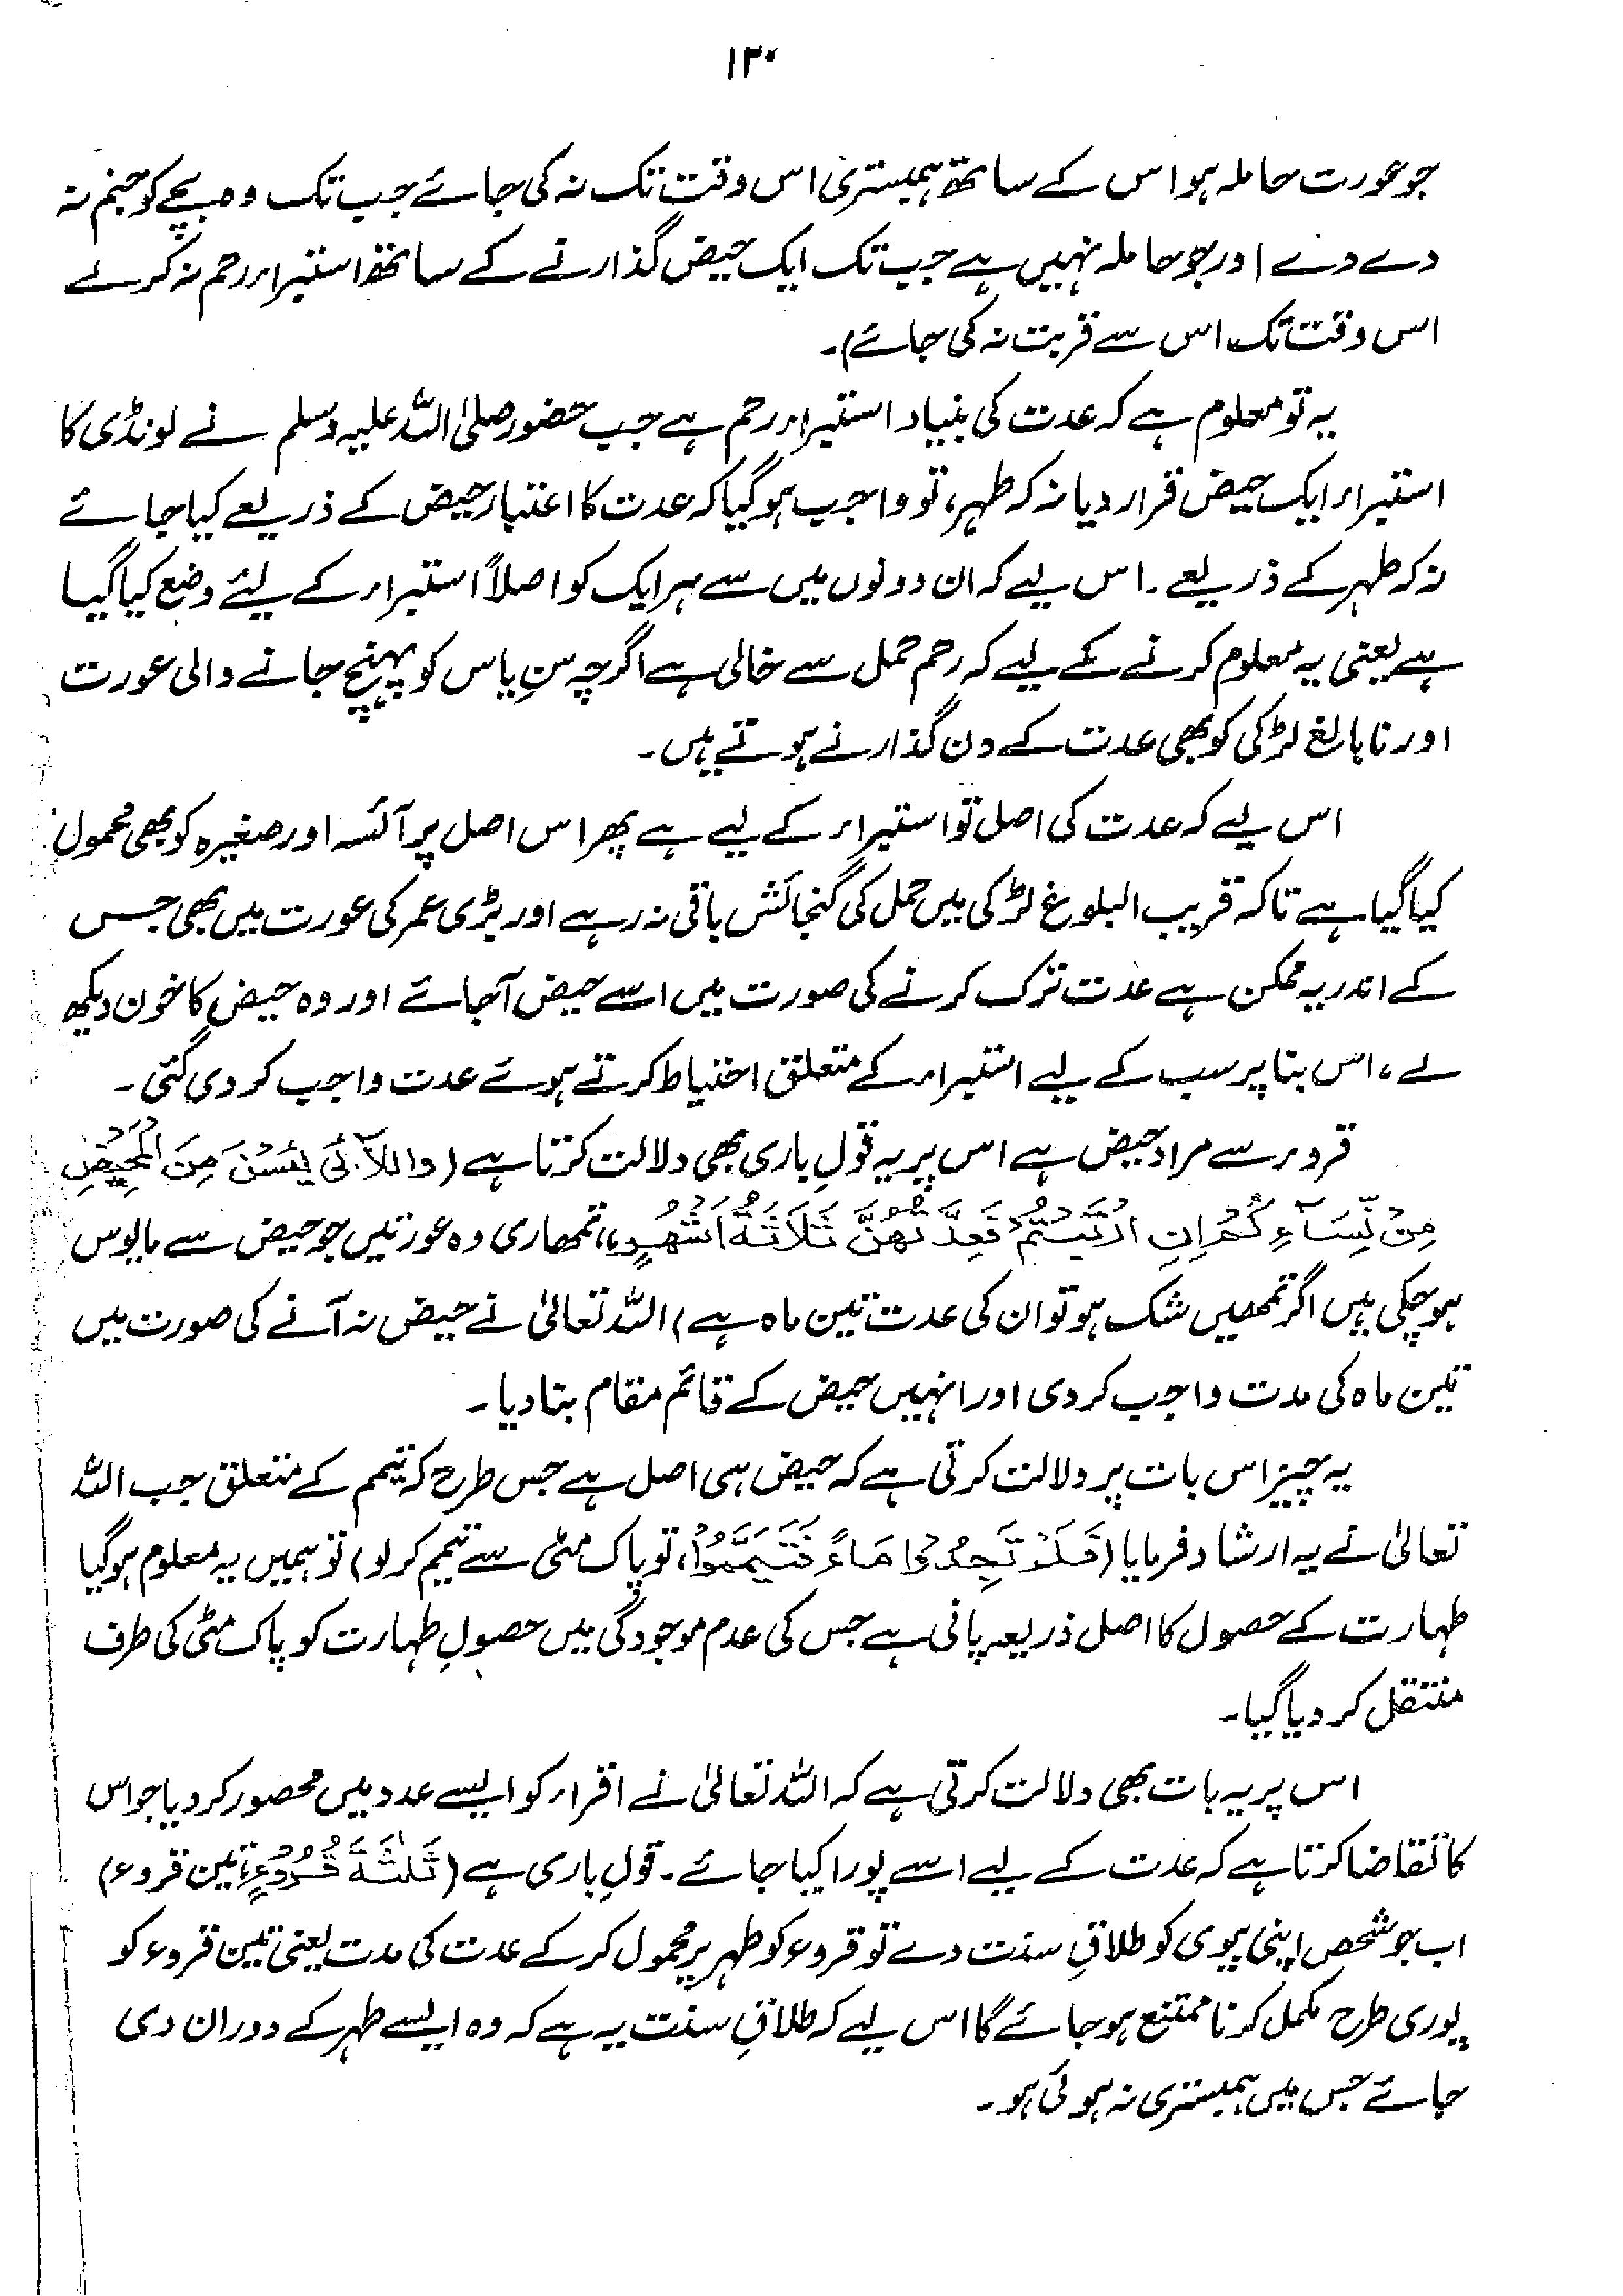 ۱۳۰
جو عورت حاملہ ہو اس کے ساتھ ہمبستری اس وقت تک نہ کی جائے جب تک وہ بچے کو جنم نہ
دے دے اور جو حاملہ نہیں ہے جب تک ایک حیض گذارنے کے ساتھ استبراء رحم نہ کرلے
اس وقت تک اس سے قربت نہ کی جائے)۔
یہ تو معلوم ہے کہ عدت کی بنیاد استبراء رحم ہے جب حضور صلی اللہ علیہ وسلم نے لونڈی کا
استبراء ایک حیض قرار دیا نہ کہ طہر، تو واجب ہوگیا کہ عدت کا اعتبار حیض کے ذریعے کیا جائے
نہ کہ طہر کے ذریعے۔ اس لیے کہ ان دونوں میں سے ہر ایک کو اصلاً استبراء کے لیئے وضع کیا گیا
ہے یعنی یہ معلوم کرنے کے لیے کہ رحم حمل سے خالی ہے اگرچہ سنِ یاس کو پہنچ جانے والی عورت
اور نابالغ لڑکی کو بھی عدت کے دن گذارنے ہوتے ہیں۔
اس لیے کہ عدت کی اصل تو استبراء کے لیے ہے پھر اس اصل پر آئسہ اور صغیرہ کو بھی محمول
کیا گیا ہے تاکہ قریب البلوغ لڑکی میں حمل کی گنجائش باقی نہ رہے اور بڑی عمر کی عورت میں بھی جس
کے اندر یہ ممکن ہے عدت ترک کرنے کی صورت میں اسے حیض آجائے اور وہ حیض کا خون دیکھ
لے، اس بنا پر سب کے لیے استبراء کے متعلق احتیاط کرتے ہوئے عدت واجب کردی گئی۔
قروء سے مراد حیض ہے اس پر یہ قولِ باری بھی دلالت کرتا ہے (وَاللَّآئِیْ یَئِسْنَ مِنَ الْمَحِیْضِ
مِنْ نِّسَآءِکُمْ اِنِ ارْتَبْتُمْ فَعِدَّتُهُنَّ ثَلَاثَةُ اَشْهُرٍ، تمھاری وہ عورتیں جو حیض سے مایوس
ہوچکی ہیں اگر تمھیں شک ہو تو ان کی عدت تین ماہ ہے) اللہ تعالیٰ نے حیض نہ آنے کی صورت میں
تین ماہ کی مدت واجب کردی اور انہیں حیض کے قائم مقام بنادیا۔
یہ چیز اس بات پر دلالت کرتی ہے کہ حیض ہی اصل ہے جس طرح کہ تیمم کے متعلق جب اللہ
تعالیٰ نے یہ ارشاد فرمایا (فَلَمْ تَجِدُوْا مَاءً فَتَیَمَّمُوْا، تو پاک مٹی سے تیمم کرلو) تو ہمیں یہ معلوم ہوگیا
طہارت کے حصول کا اصل ذریعہ پانی ہے جس کی عدم موجودگی میں حصولِ طہارت کو پاک مٹی کی طرف
منتقل کردیا گیا۔
اس پر یہ بات بھی دلالت کرتی ہے کہ اللہ تعالیٰ نے اقراء کو ایسے عدد میں محصور کردیا جو اس
کا تقاضا کرتا ہے کہ عدت کے لیے اسے پورا کیا جائے۔ قولِ باری ہے (ثَلٰثَةَ قُرُوْءٍ، تین قروء)
اب جو شخص اپنی بیوی کو طلاقِ سنت دے تو قروء کو طہر پر محمول کرکے عدت کی مدت یعنی تین قروء کو
پوری طرح مکمل کرنا ممتنع ہوجائے گا اس لیے کہ طلاقِ سنت یہ ہے کہ وہ ایسے طہر کے دوران دی
جائے جس میں ہمبستری نہ ہوئی ہو۔